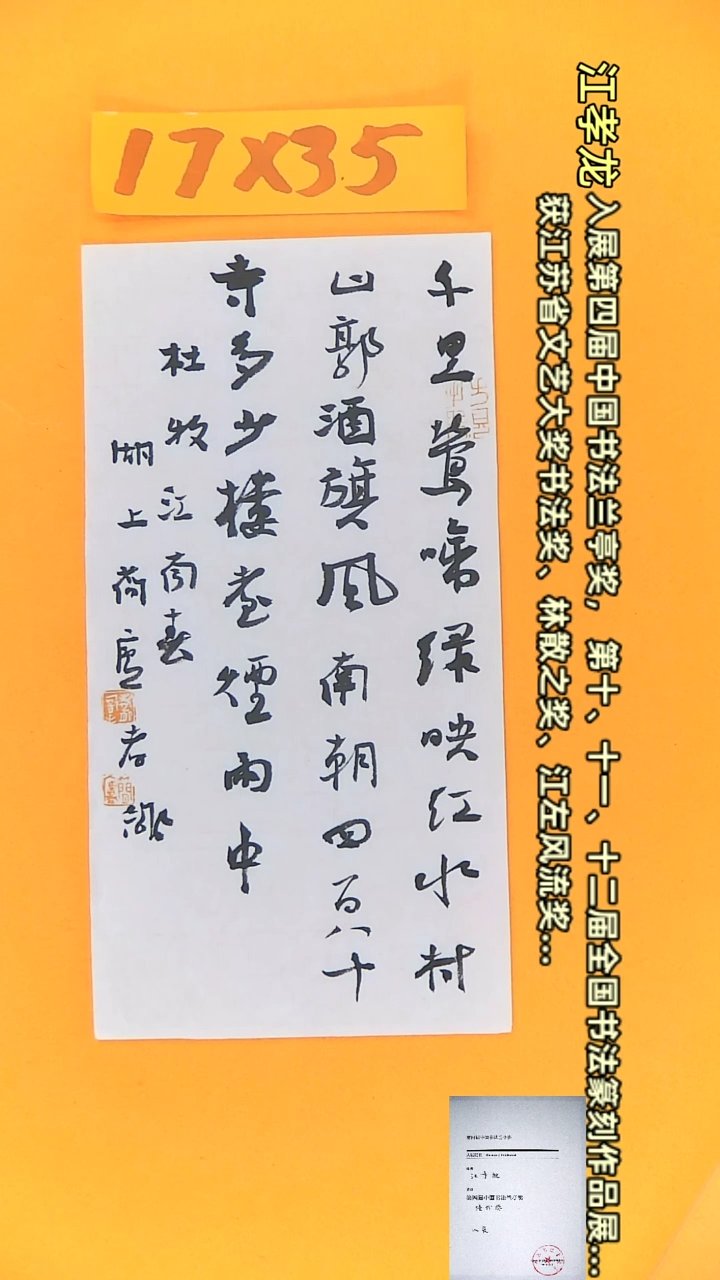 江孝龙 入展第四届中国书法兰亭奖，第十、十一、十二届全国书法篆刻作品展...
获江苏省文艺大奖书法奖、林散之奖、江左风流奖...
17X35
千里莺啼绿映红水村
山郭酒旗风南朝四百八十
寺多少楼台煙雨中
杜牧江南春
湖上荷廬孝龍